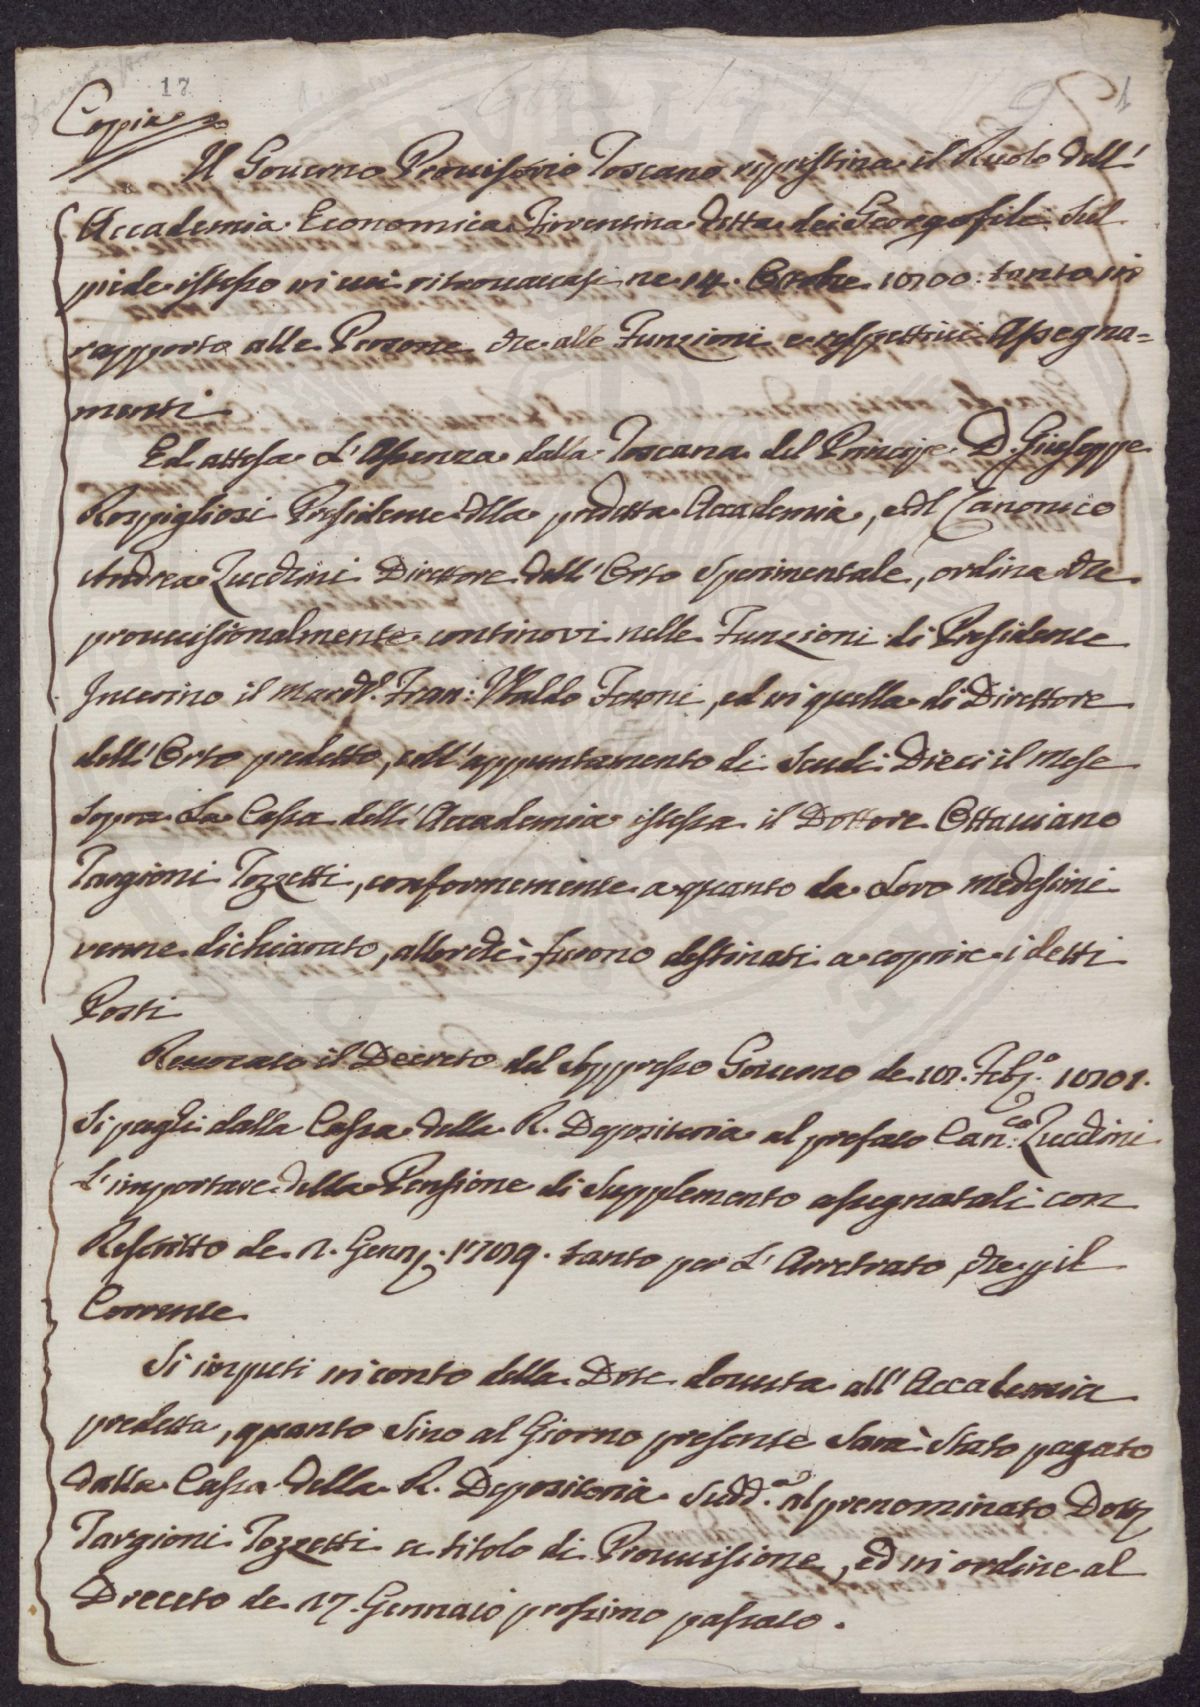 17
1
Copia
Il Governo Provvisorio Toscano ripristina il Ruolo dell'
Accademia Economica Fiorentina detta dei Georgofili sul
piede istesso in cui ritrovavasi ne 14. Ottobre 1800. tanto in
rapporto alle Persone che alle Funzioni e respettivi Assegna=
menti
Ed attesa l'Assenza dalla Toscana del Principe D. Giuseppe
Rospigliosi Presidente della predetta Accademia, e del Canonico
Andrea Zucchini Direttore dell'Orto Sperimentale, ordina che
provvisionalmente continovi nelle Funzioni di Presidente
Interino il March. Fran: Ubaldo Feroni, ed in quella di Direttore
dell'Orto predetto, coll'appuntamento di Scudi Dieci il Mese
sopra la Cassa dell'Accademia istessa il Dottore Ottaviano
Targioni Tozzetti, conformemente a quanto da Loro medesimi
venne dichiarato, allorchè furono destinati a coprire i detti
Posti
Revocato il Decreto del soppresso Governo de 18. Febb.o 1801.
si paghi dalla Cassa della R. Depositeria al prefato Can.co Zucchini
l'importare della Pensione di Supplemento assegnatali con
Rescritto de 2. Genn. 1789. tanto per l'Arretrato, che p il
Corrente
Si imputi in conto della Dote dovuta all'Accademia
predetta, quanto sino al Giorno presente sarà stato pagato
dalla Cassa della R. Depositeria Sudd.a al prenominato Dott
Targioni Tozzetti a titolo di Provvisione, ed in ordine al
Dreceto de 17. Gennaio prossimo passato.